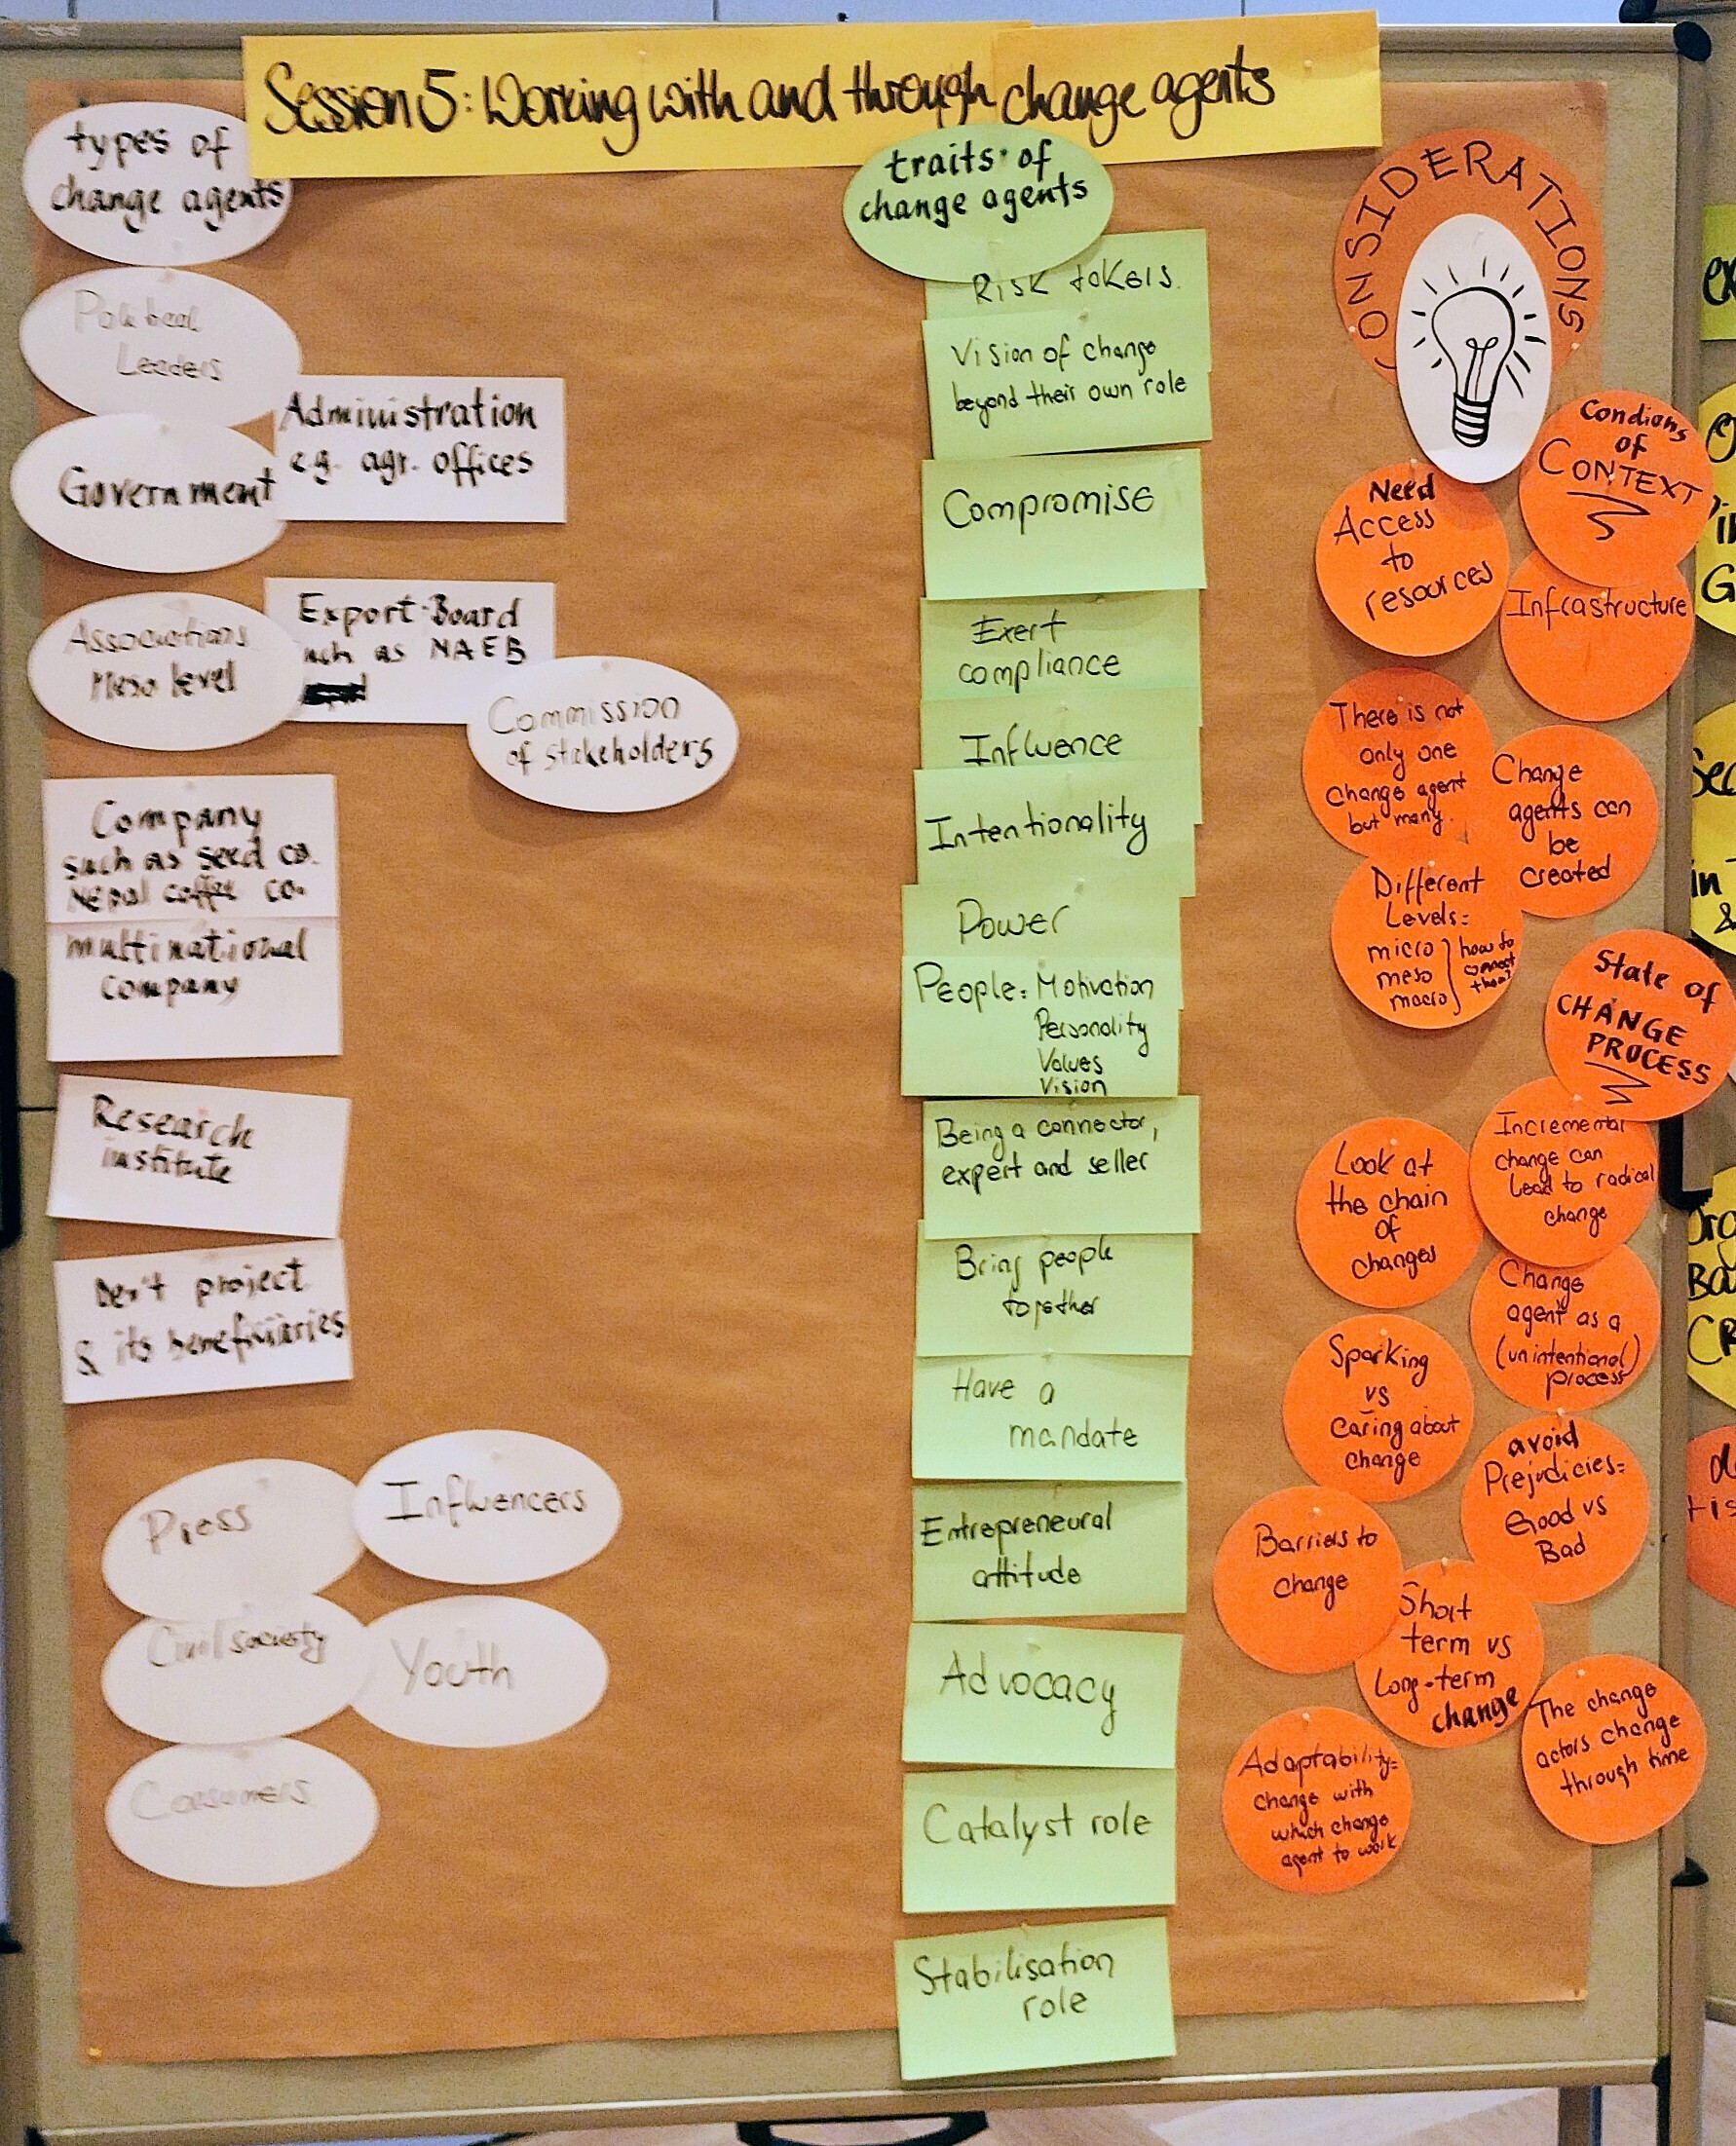 Session 5: Working with and through change agents
types of
change agents
Political
Leaders
Government
Administration
e.g. agr. offices
Associations
Meso level
Export-Board
such as NAEB
Commission
of stakeholders
Company
such as seed co.
Nepal coffee co.
multinational
company
Research
institute
Dev't project
& its beneficiaries
Press
Influencers
Civil society
Youth
Consumers
traits of
change agents
Risk takers.
Vision of change
beyond their own role
Compromise
Exert
compliance
Influence
Intentionality
Power
People: Motivation
Personality
Values
Vision
Being a connector,
expert and seller
Bring people
together
Have a
mandate
Entrepreneural
attitude
Advocacy
Catalyst role
Stabilisation
role
CONSIDERATIONS
Condions
of
CONTEXT
Need
Access
to
resources
Infrastructure
There is not
only one
change agent
but many.
Change
agents can
be
created
Different
Levels:
micro
meso
macro
how to
connect
them?
State of
CHANGE
PROCESS
Look at
the chain
of
changes
Incremental
change can
lead to radical
change
Change
agent as a
(unintentional)
process
Sparking
vs
Caring about
change
avoid
Prejudicies:
Good vs
Bad
Barriers to
change
Short
term vs
Long-term
change
The change
actors change
through time
Adaptability:
change with
which change
agent to work